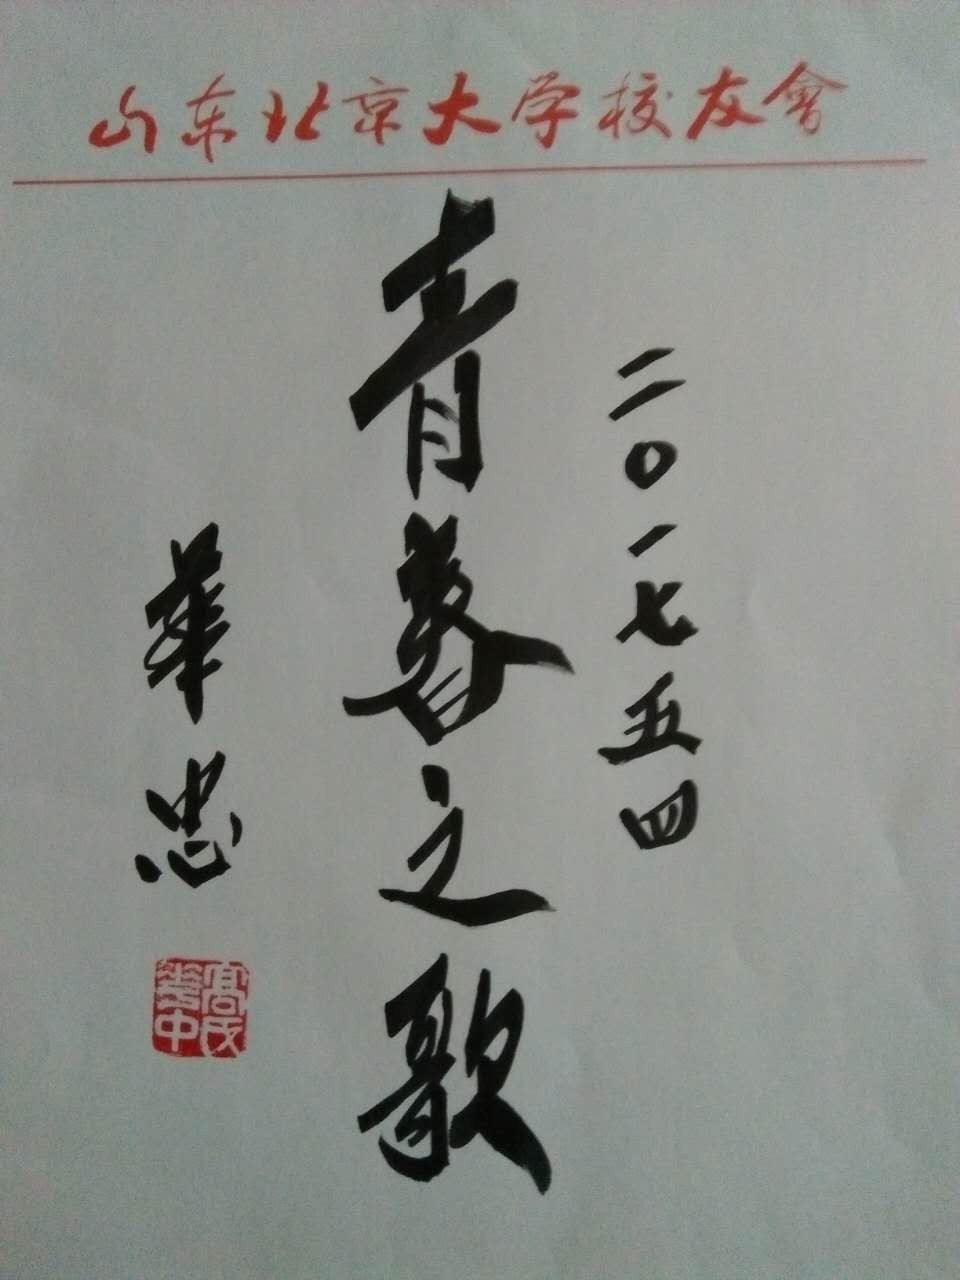 山东北京大学校友會
二〇一七五四
青春之歌
華忠
高氏
華中